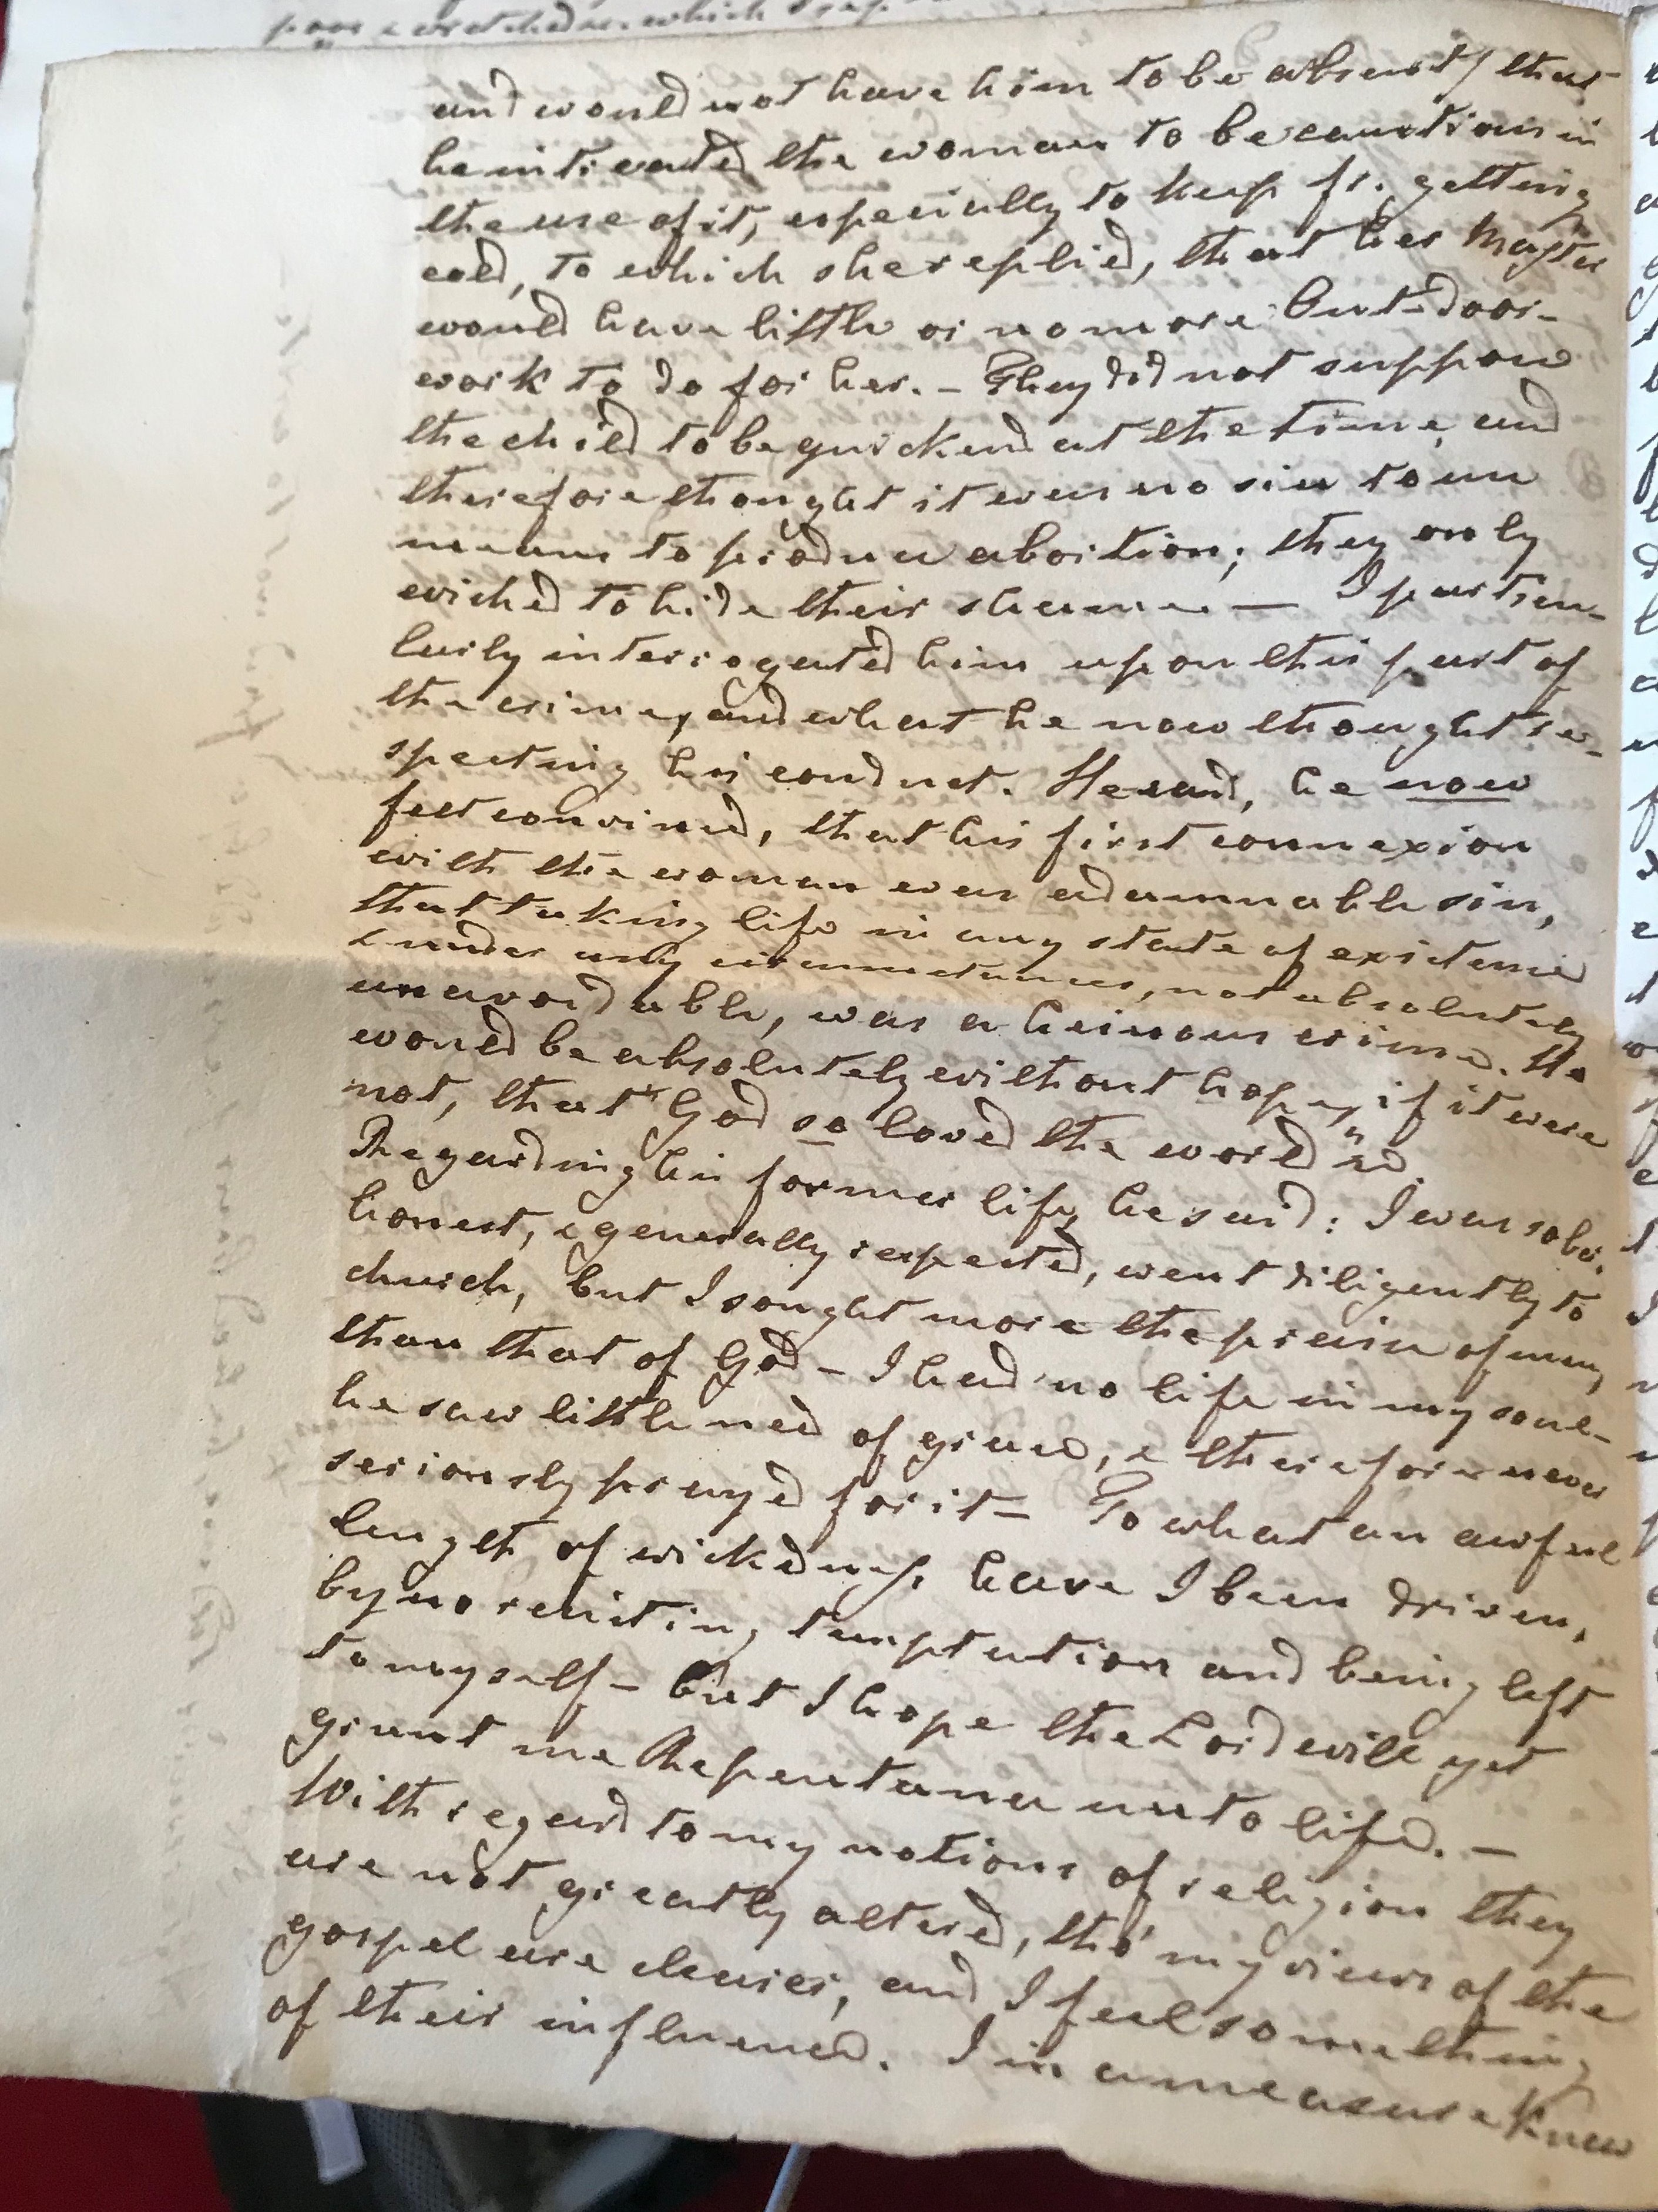 poor & wretchedness which
and would not have him to be absent) that
he intreated the woman to be cautious in
the use of it, especially to keep fr. getting
cold, to which she replied, that her Master
would have little or no more Out-door-
work to do for her. – They did not suppose
the child to be quickend at the time, and
therefore thought it was no sin to use
means to produce abortion; they only
wished to hide their shame — I particu-
larly interrogated him upon this part of
the crime, and what he now thought re-
specting his conduct. He said, he now
felt convinced, that his first connexion
with the woman was a damnable sin,
that taking life in any state of existence
& under any circumstances, not absolutely
unavoidable, was a heinous crime. He
would be absolutely without hope, if it were
not, that "God so loved the world" &c.
Regarding his former life, he said: I was sober,
honest, & generally respected, went diligently to
church, but I sought more the praise of men,
than that of God – I had no life in my soul –
he saw little need of grace, & therefore never
seriously prayed for it – To what an awful
length of wickedness have I been driven,
by no resisting temptation and being left
to myself – But I hope the Lord will yet
grant me Repentance unto life. –
With regard to my notions of religion they
are not greatly altered, tho' my views of the
gospel are clearer, and I feel something
of their influence. I in a measure knew